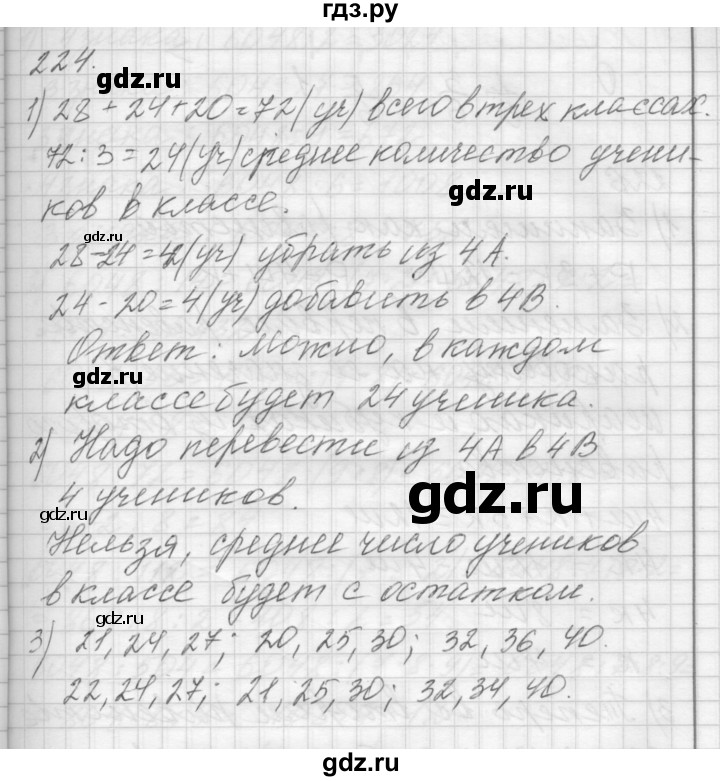 гдз.ру
224.
gdz.ru
1) 28 + 24 + 20 = 72 (уч) всего в трех классах.
72 : 3 = 24 (уч) среднее количество учени-
gdz.ru
ков в классе.
gdz.ru
28 - 24 = 4 (уч) убрать из 4А.
24 - 20 = 4 (уч) добавить в 4В.
gdz.ru
Ответ: Можно, в каждом
gdz.ru
классе будет 24 ученика.
2) Надо перевести из 4А в 4В
gdz.ru
4 учеников.
gdz.ru
gdz.ru
Нельзя, среднее число учеников
в классе будет с остатком.
gdz.ru
gdz.ru
3) 21, 24, 27; 20, 25, 30; 32, 36, 40.
22, 24, 27; 21, 25, 30; 32, 34, 40.
gdz.ru
gdz.ru
gdz.ru